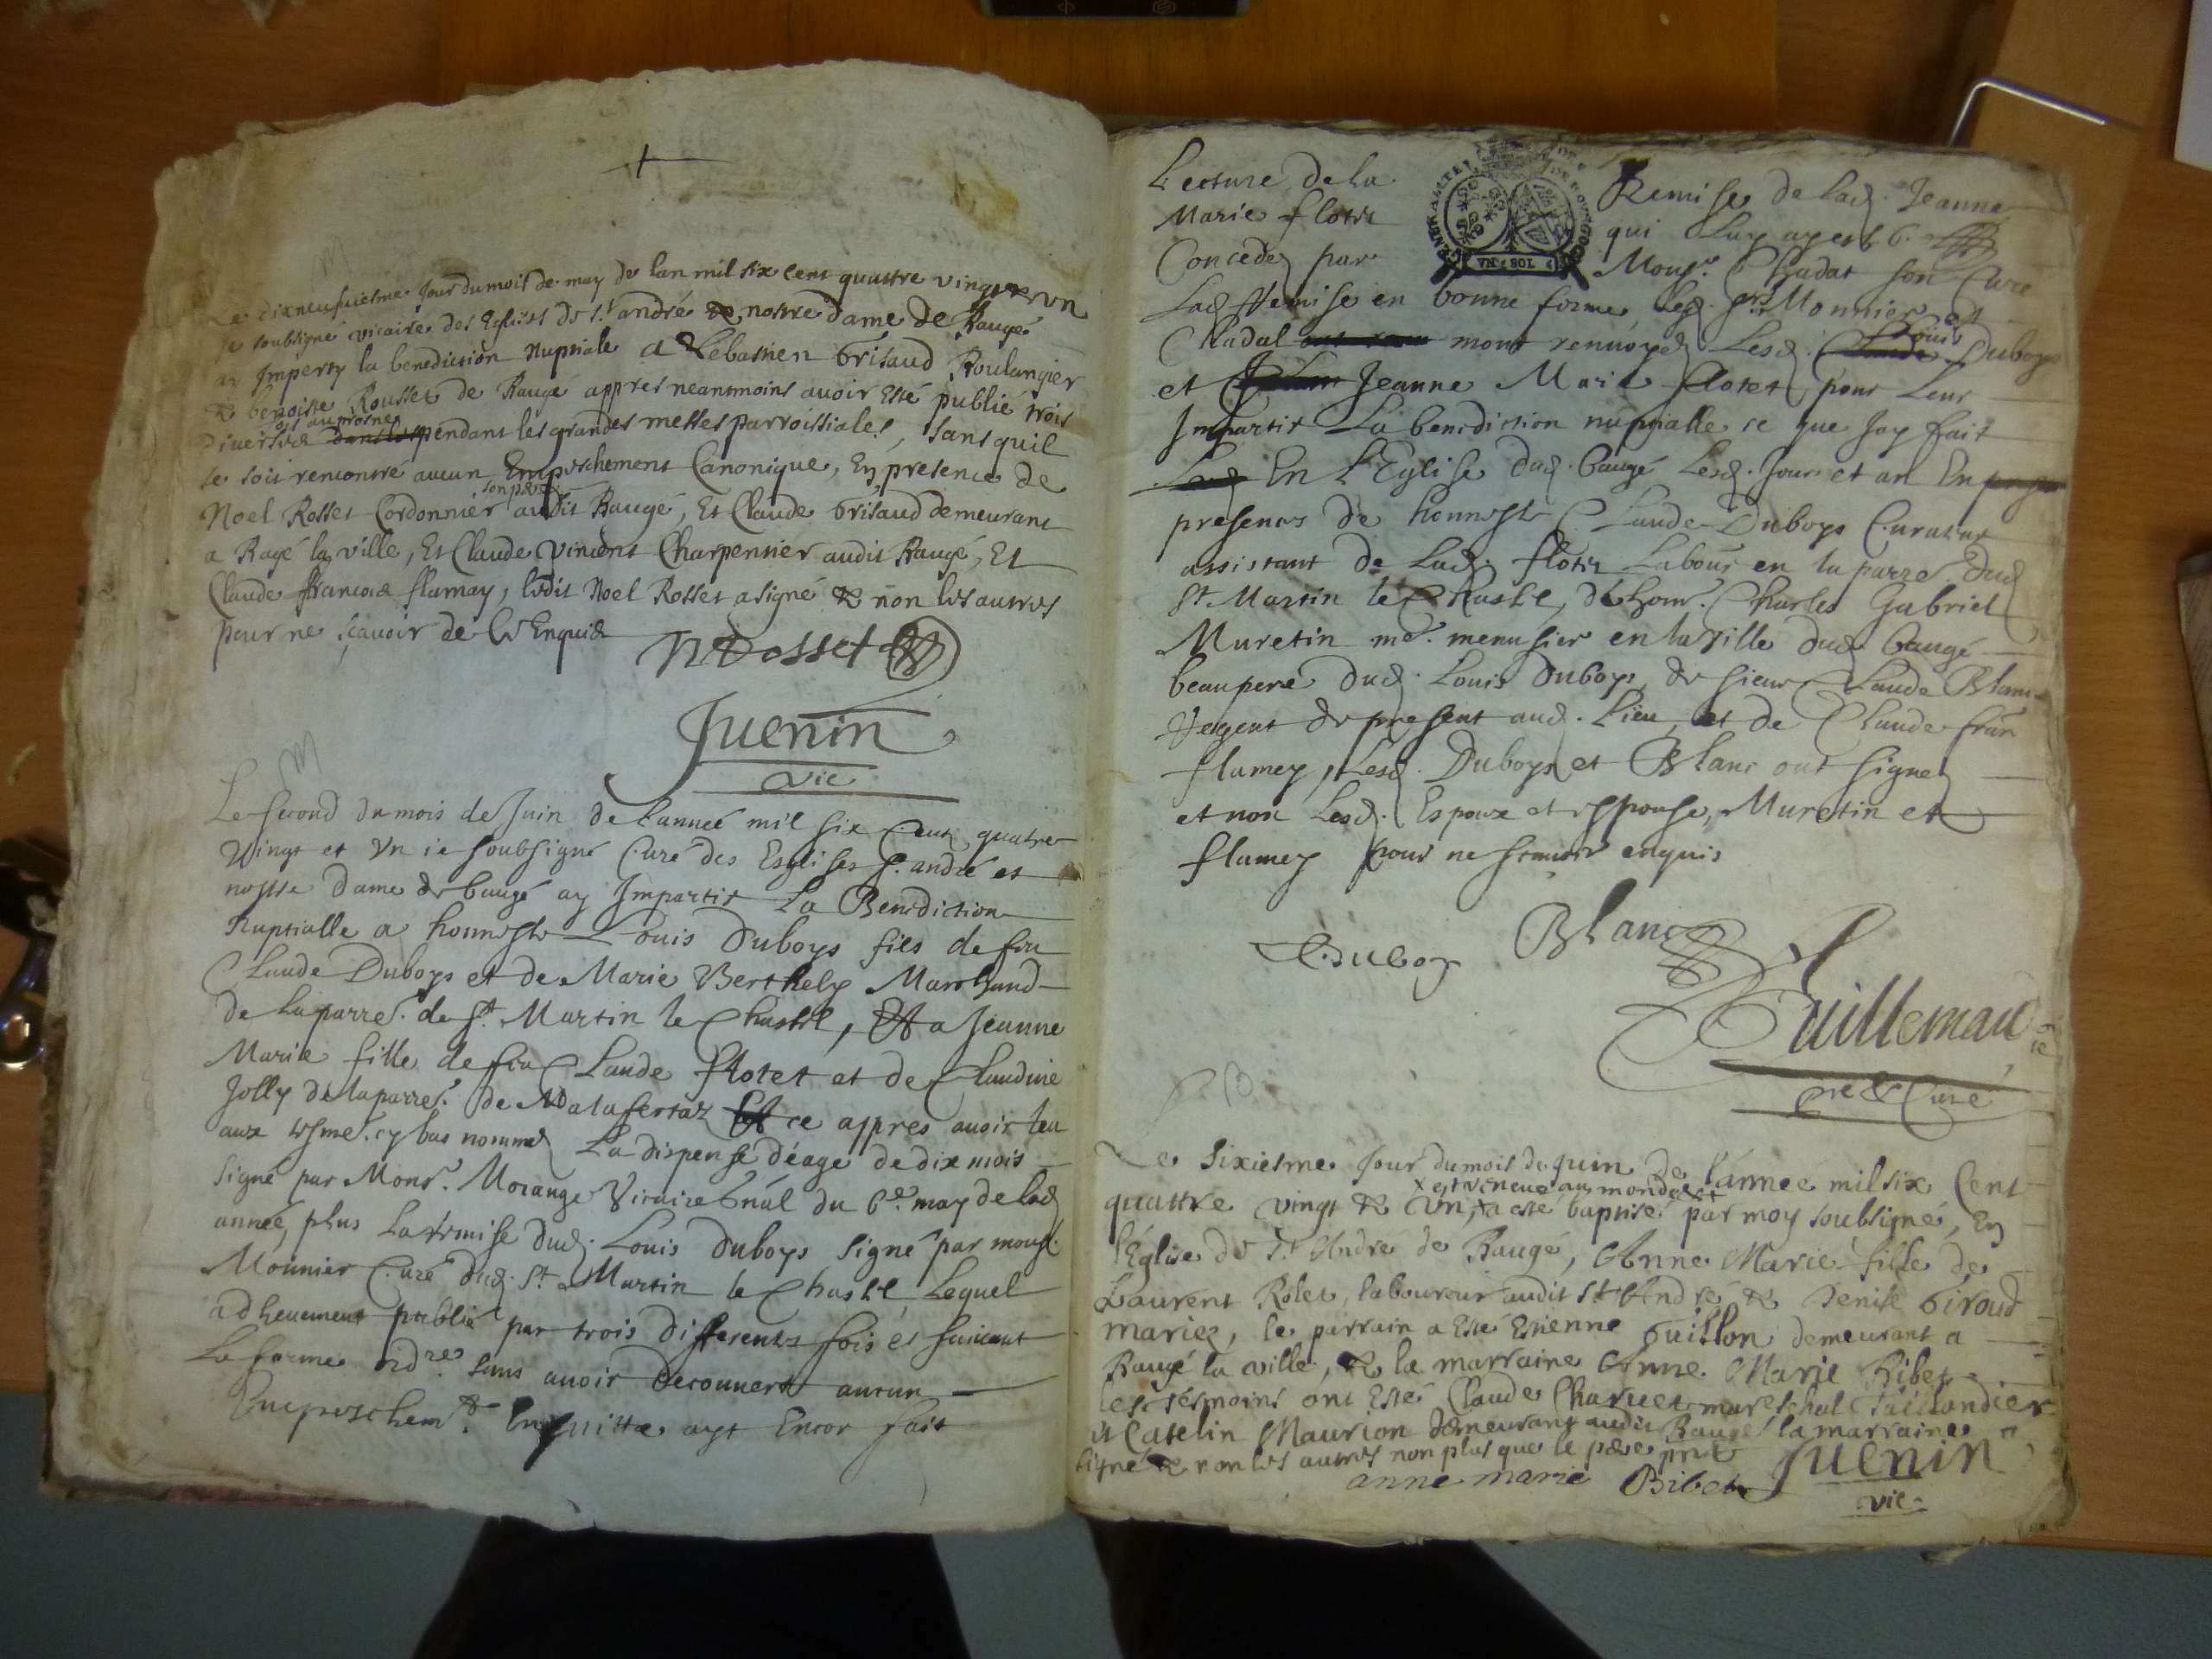 Le dixneufuiesme Jour du mois de may de lan mil six cent quattre vingt & vn
Je soubsigné vicaire des Eglises de St andré & nostre dame de Baugé
ay Imperty la benediction Nuptiale a Sebastien Grisaud Boulangier
& benoiste Rousset de Baugé appres neantmoins auoir Esté publié trois
fois au prosne
Diverses pendant les grandes messes parroissiales, sans quil
se soit rencontré aucun Empeschement Canonique, En presence de
son pere
Noel Rosset Cordonnier audit Baugé, Et Claude Grisaud demeurant
a Bagé la ville, Et Claude Vincent Charpentier audit Baugé, Et
Claude françois flamay, ledit Noel Rosset a signé & non les autres
pour ne sçauoir de ce Enquis
NRosset
Juenin
vic
Le second du mois de Juin de l'année mil six Cent quatre
Vingt et Vn ie soubsigné Curé des Esglises St andré et
nostre Dame de baugé ay Impartit La Benediction
Nuptialle a honneste Louis Duboys fils de feu
Claude Duboys et de Marie Berthely Marchand
de la parre. de St Martin le Chastel, Et a Jeanne
Marie fille de feu Claude flotet et de Claudine
Jolly de la parre. de Malafertaz Et ce appres auoir leu
aux tesme. cy bas nommez La dispense d'eage de dix mois
signé par Monsr. Morange Vicaire Gnâl du 6e. may de lad
année, plus la remise dud. Louis Duboys signé par mons.
Monnier Curé dud. St Martin le Chastel Lequel
adheuement publié par trois differentes fois et suiuant
la forme ordre. sans auoir decouuert aucun
Empeschemt. & Ensuitte ayt Encor fait
Lecture de la Remise de lad. Jeanne
Marie flotet qui Luy ayest 6.
Concedez par Monsr. Chadat son Curé
Lad Remise en bonne forme, Lesd. srs Monnier et
Louis
Chadal mont renuoyez Lesd. Duboys
et Jeanne Marie flotet pour Leur
Impartir La benediction nuptialle ce que Jay fait
En L'Eglise dud. baugé Lesd. Jour et an En
presence de honneste Claude Duboys Curateur
assistant de Lad. flotet Labour. en la parre. dud
St Martin le Chastel, de honr. Charles Gabriel
Muretin me. menusier en la Ville dud. baugé
beaupere dud. Louis Duboys, de sieur Claude Blanc
Sergent de present aud. Lieu, et de Claude fran
flamey, Lesd. Duboys et Blanc ont signez
et non Lesd. Espoux et espouse, Muretin et
flamey pour ne scauoir enquis
C.duboy Blanc
Guillemaud
pre & Curé
Le Sixiesme Jour du mois de juin de l'année mil six Cent
x est veneue au monde et
quattre vingt & Vn, x a esté baptisé par moy soubsigné, En
l'Eglise de St André de Baugé, Anne Marie fille de
Laurent Rolet, laboureur audit St André & Denise Giroud
mariez, le parrain a Esté Estienne Guillon demeurant a
Baugé la ville, & la marraine Anne Marie Bibet
les tesmoins ont Esté Claude Charuet mareschal Taillandier
et Catelin Maurion demeurant audit Baugé la marraine a
signé & non les autres non plus que le pere prnt
anne marie Bibet Juenin
vic